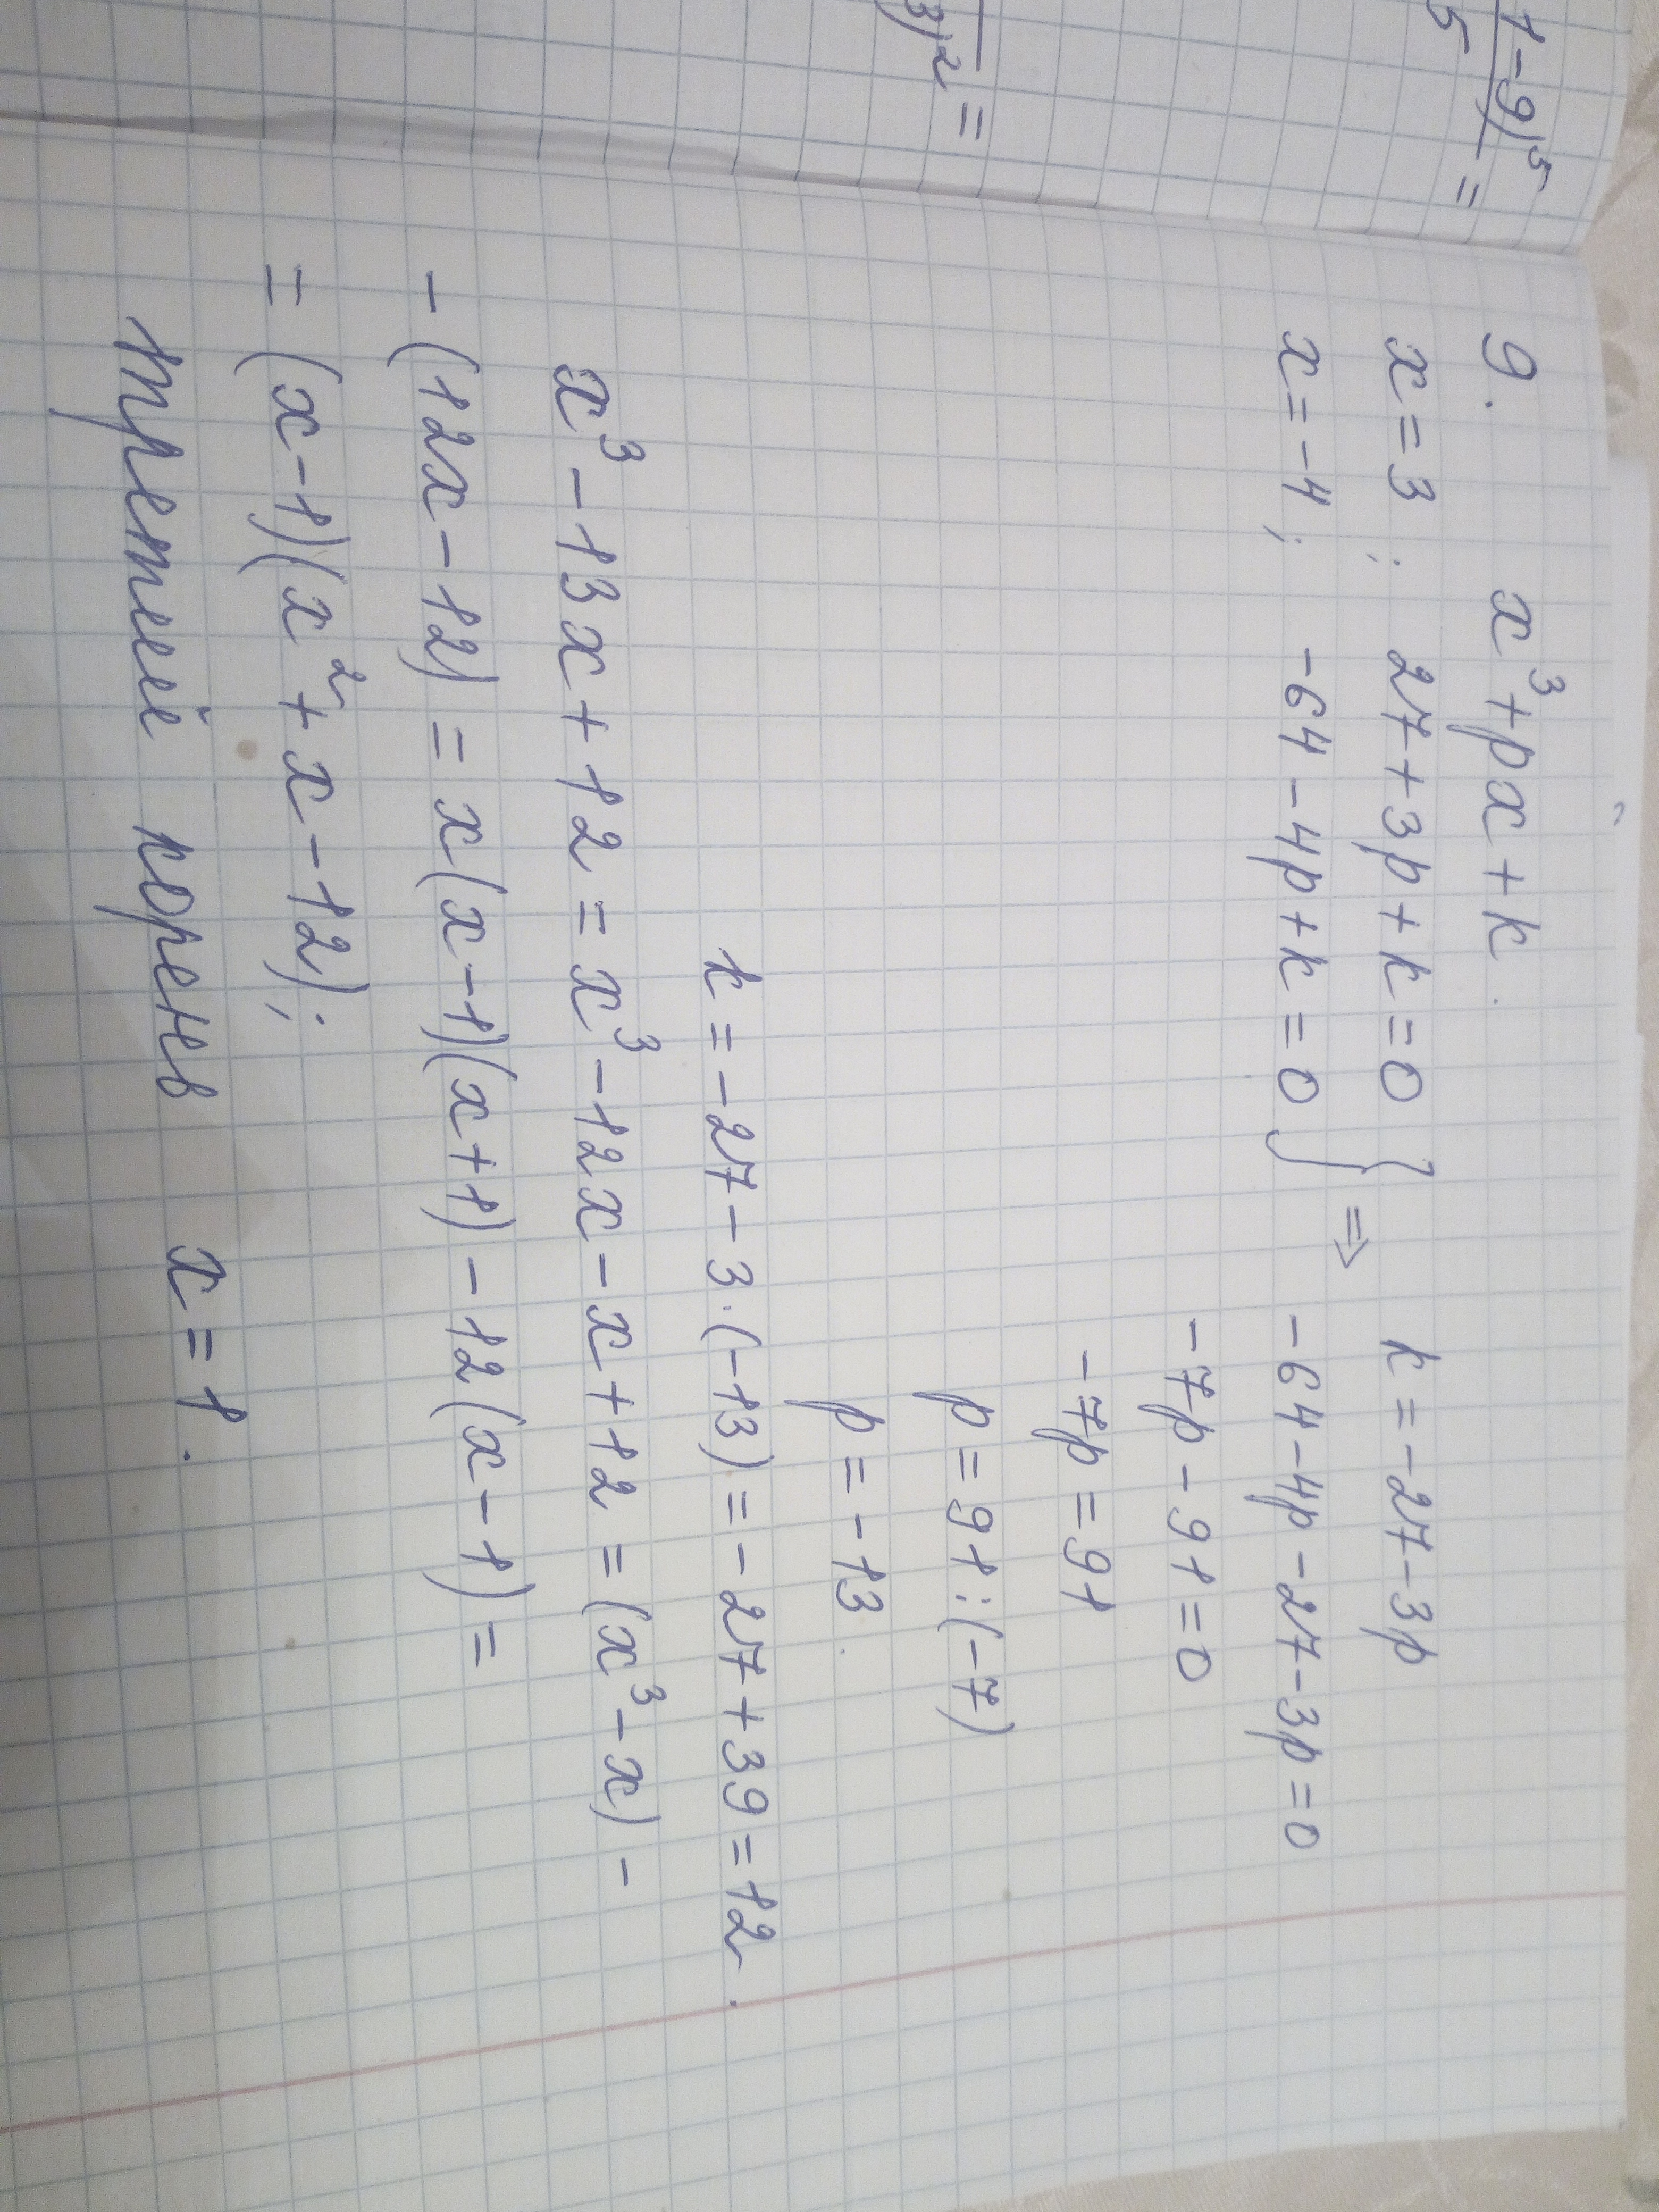 1-9)⁵
5 =
3)² =
9. x³+px+k.
x=3; 27+3p+k=0 } ⇒ k=-27-3p
x=-4; -64-4p+k=0 -64-4p-27-3p=0
-7p-91=0
-7p=91
p=91:(-7)
p=-13.
k=-27-3·(-13)=-27+39=12.
x³-13x+12=x³-12x-x+12=(x³-x)-
-(12x-12)=x(x-1)(x+1)-12(x-1)=
=(x-1)(x²+x-12);
третий корень x=1.